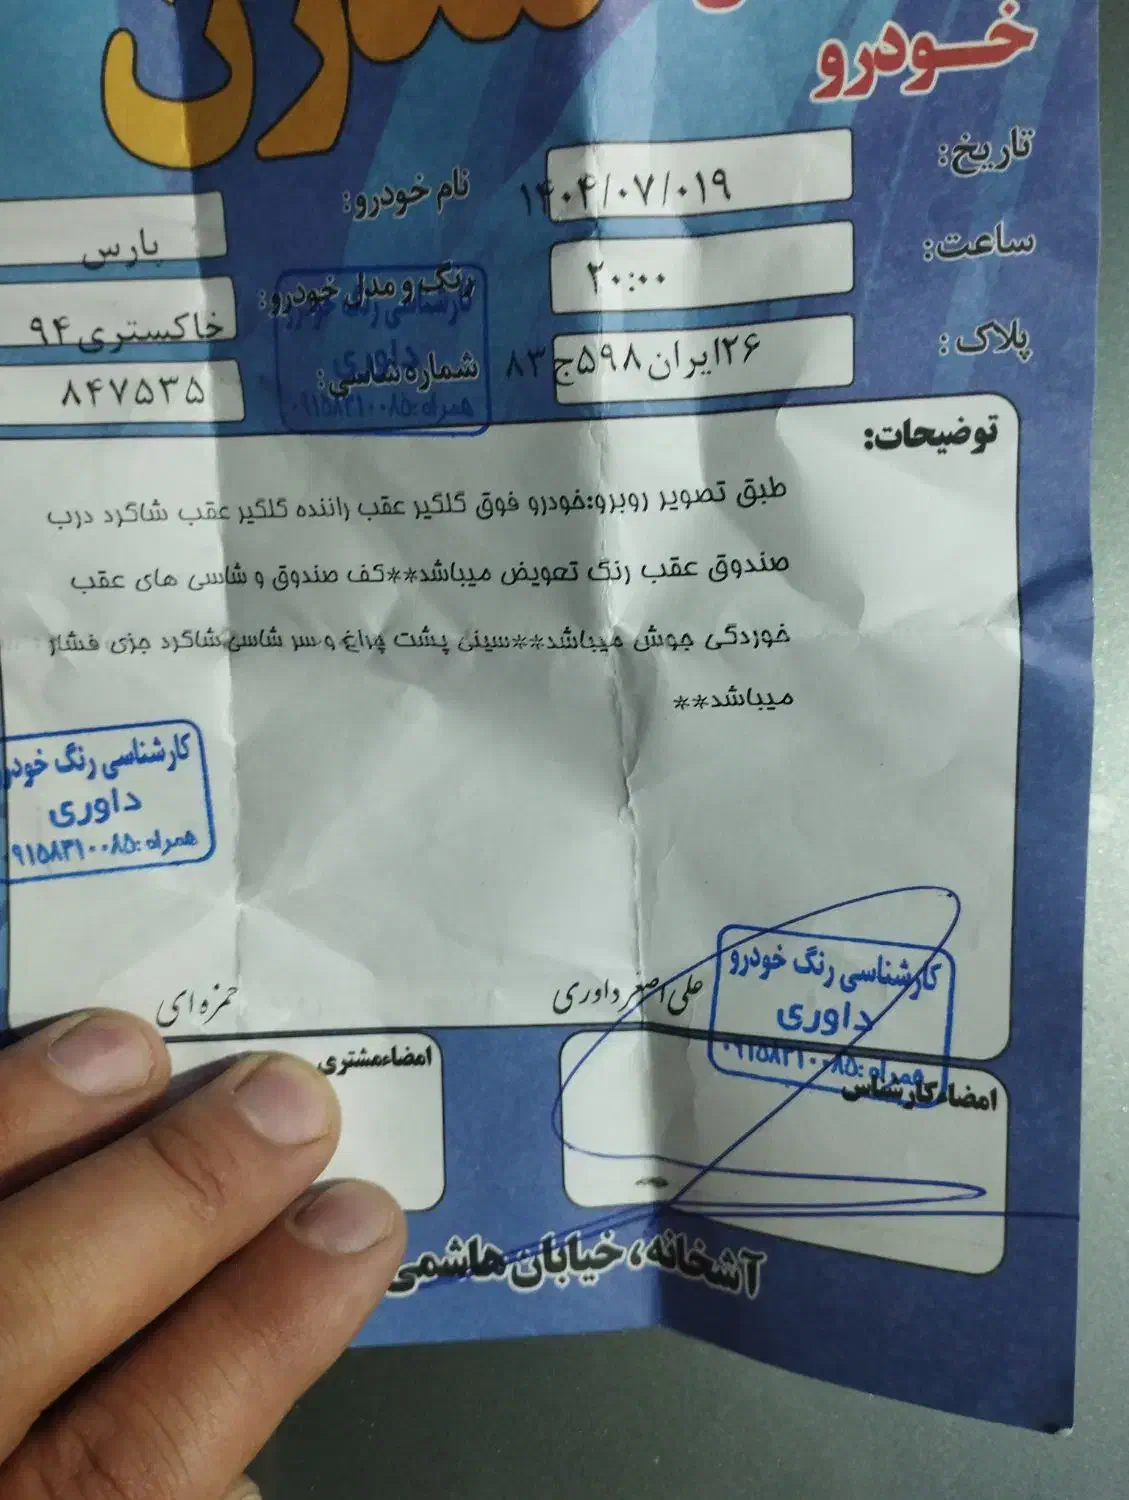 خودرو
تاریخ: ۱۴۰۴/۰۷/۰۱۹
نام خودرو: پارس
ساعت: ۲۰:۰۰
رنگ و مدل خودرو: خاکستری ۹۴
پلاک: ۲۶ایران۵۹۸ج۸۳
شماره شاسی: ۸۴۷۵۳۵
کارشناسی رنگ خودرو
داوری
همراه: ۰۹۱۵۸۳۱۰۰۸۵
توضیحات:
طبق تصویر روبرو:خودرو فوق گلگیر عقب راننده گلگیر عقب شاگرد درب
صندوق عقب رنگ تعویض میباشد**کف صندوق و شاسی های عقب
خوردگی جوش میباشد**سینی پشت چراغ و سر شاسی شاگرد جزی فشار
میباشد**
کارشناسی رنگ خودرو
داوری
همراه: ۰۹۱۵۸۳۱۰۰۸۵
کارشناسی رنگ خودرو
داوری
همراه: ۰۹۱۵۸۳۱۰۰۸۵
علی اصغر داوری
حمزه ای
امضاء کارشناس
امضاء مشتری
آشخانه، خیابان هاشمی